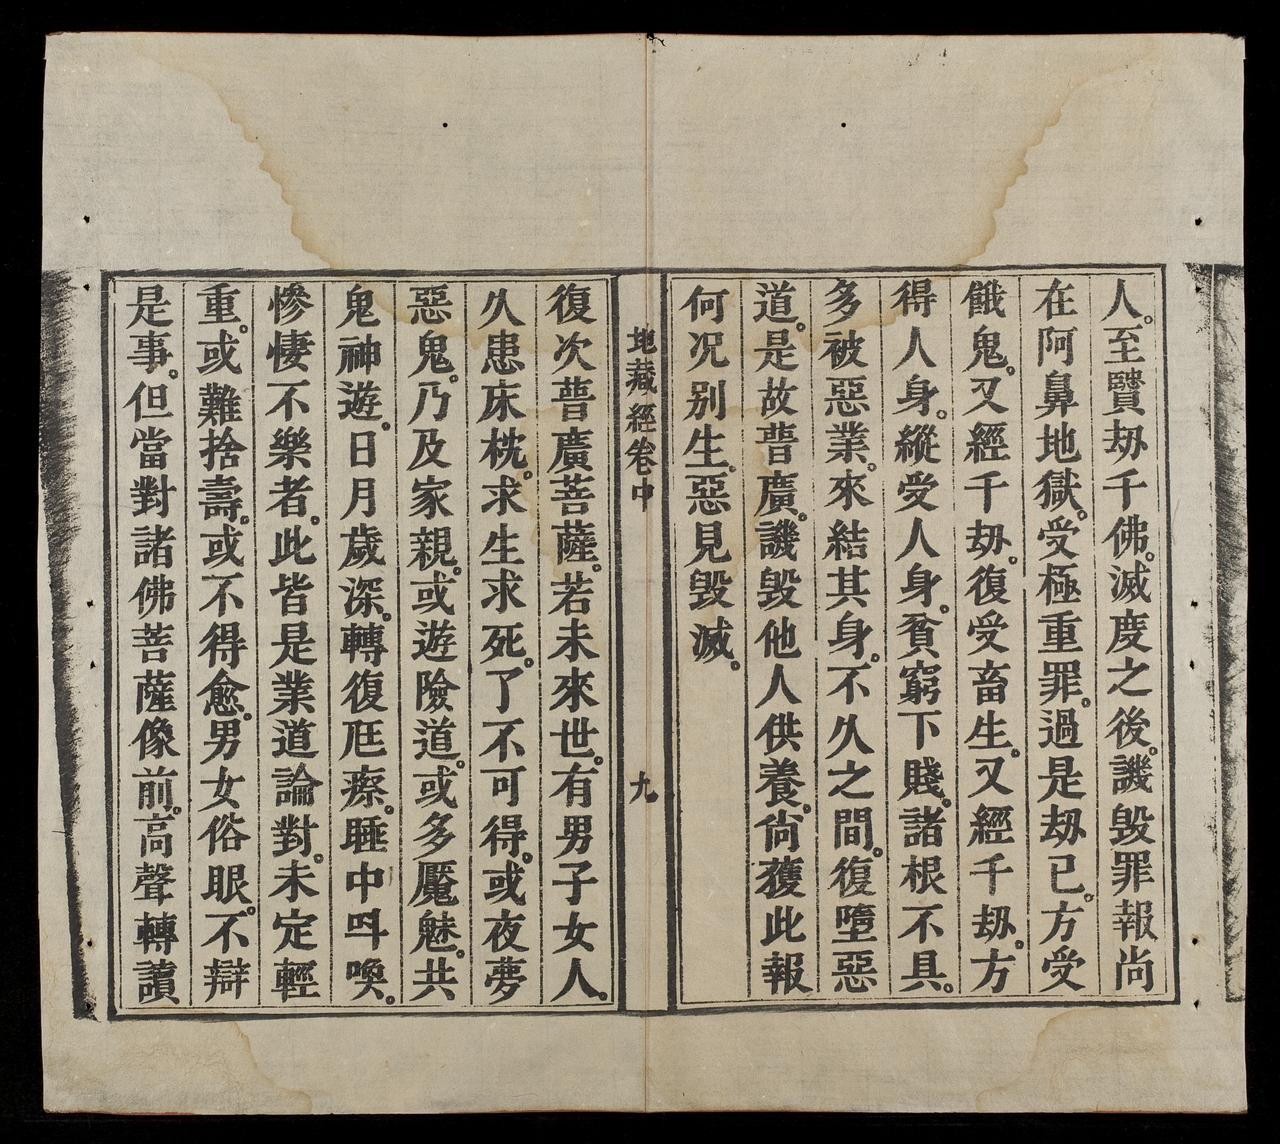 人。至賢劫千佛。滅度之後。譏毀罪報尚
在阿鼻地獄。受極重罪。過是劫已。方受
餓鬼。又經千劫。復受畜生。又經千劫。方
得人身。縱受人身。貧窮下賤。諸根不具。
多被惡業。來結其身。不久之間。復墮惡
道。是故普廣。譏毀他人供養。尚獲此報
何况别生。惡見毀滅。
地藏經卷中
九
復次普廣菩薩。若未來世。有男子女人。
久患床枕。求生求死。了不可得。或夜夢
惡鬼。乃及家親。或遊險道。或多魘魅。共
鬼神遊。日月歲深。轉復尫瘵。睡中呌喚。
慘悽不樂者。此皆是業道論對。未定輕
重。或難捨壽。或不得愈。男女俗眼。不辯
是事。但當對諸佛菩薩像前。高聲轉讀